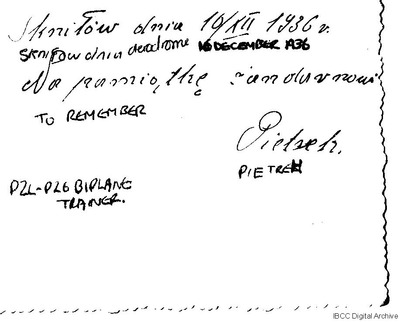 Skniłów dnia 16/XII 1936 r.
SKNIŁOW dnia aerodrome 16 DECEMBER 1936
Na pamiątkę
TO REMEMBER
Pietrek.
PIETREK
PZL-P26 BIPLANE
TRAINER.
IBCC Digital Archive